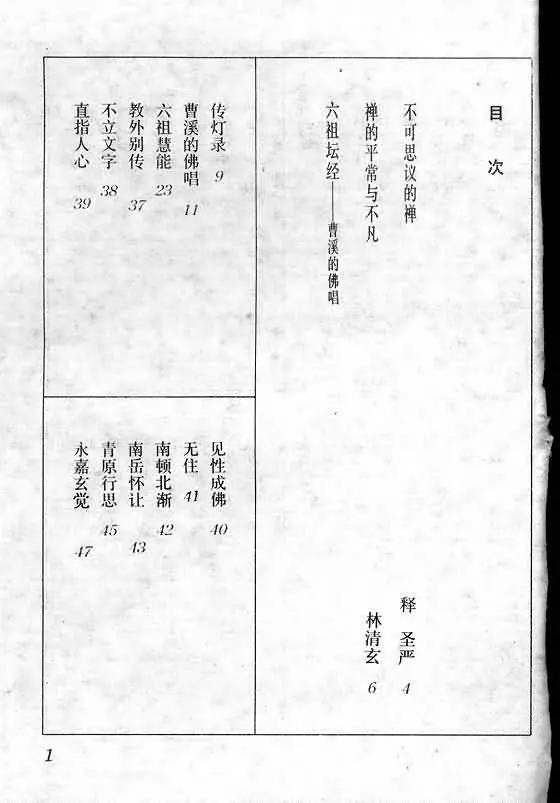 目次
不可思议的禅 释圣严 4
禅的平常与不凡 林清玄 6
六祖坛经——曹溪的佛唱
传灯录 9
曹溪的佛唱 11
六祖慧能 23
教外别传 37
不立文字 38
直指人心 39
见性成佛 40
无住 41
南顿北渐 42
南岳怀让 43
青原行思 45
永嘉玄觉 47
1